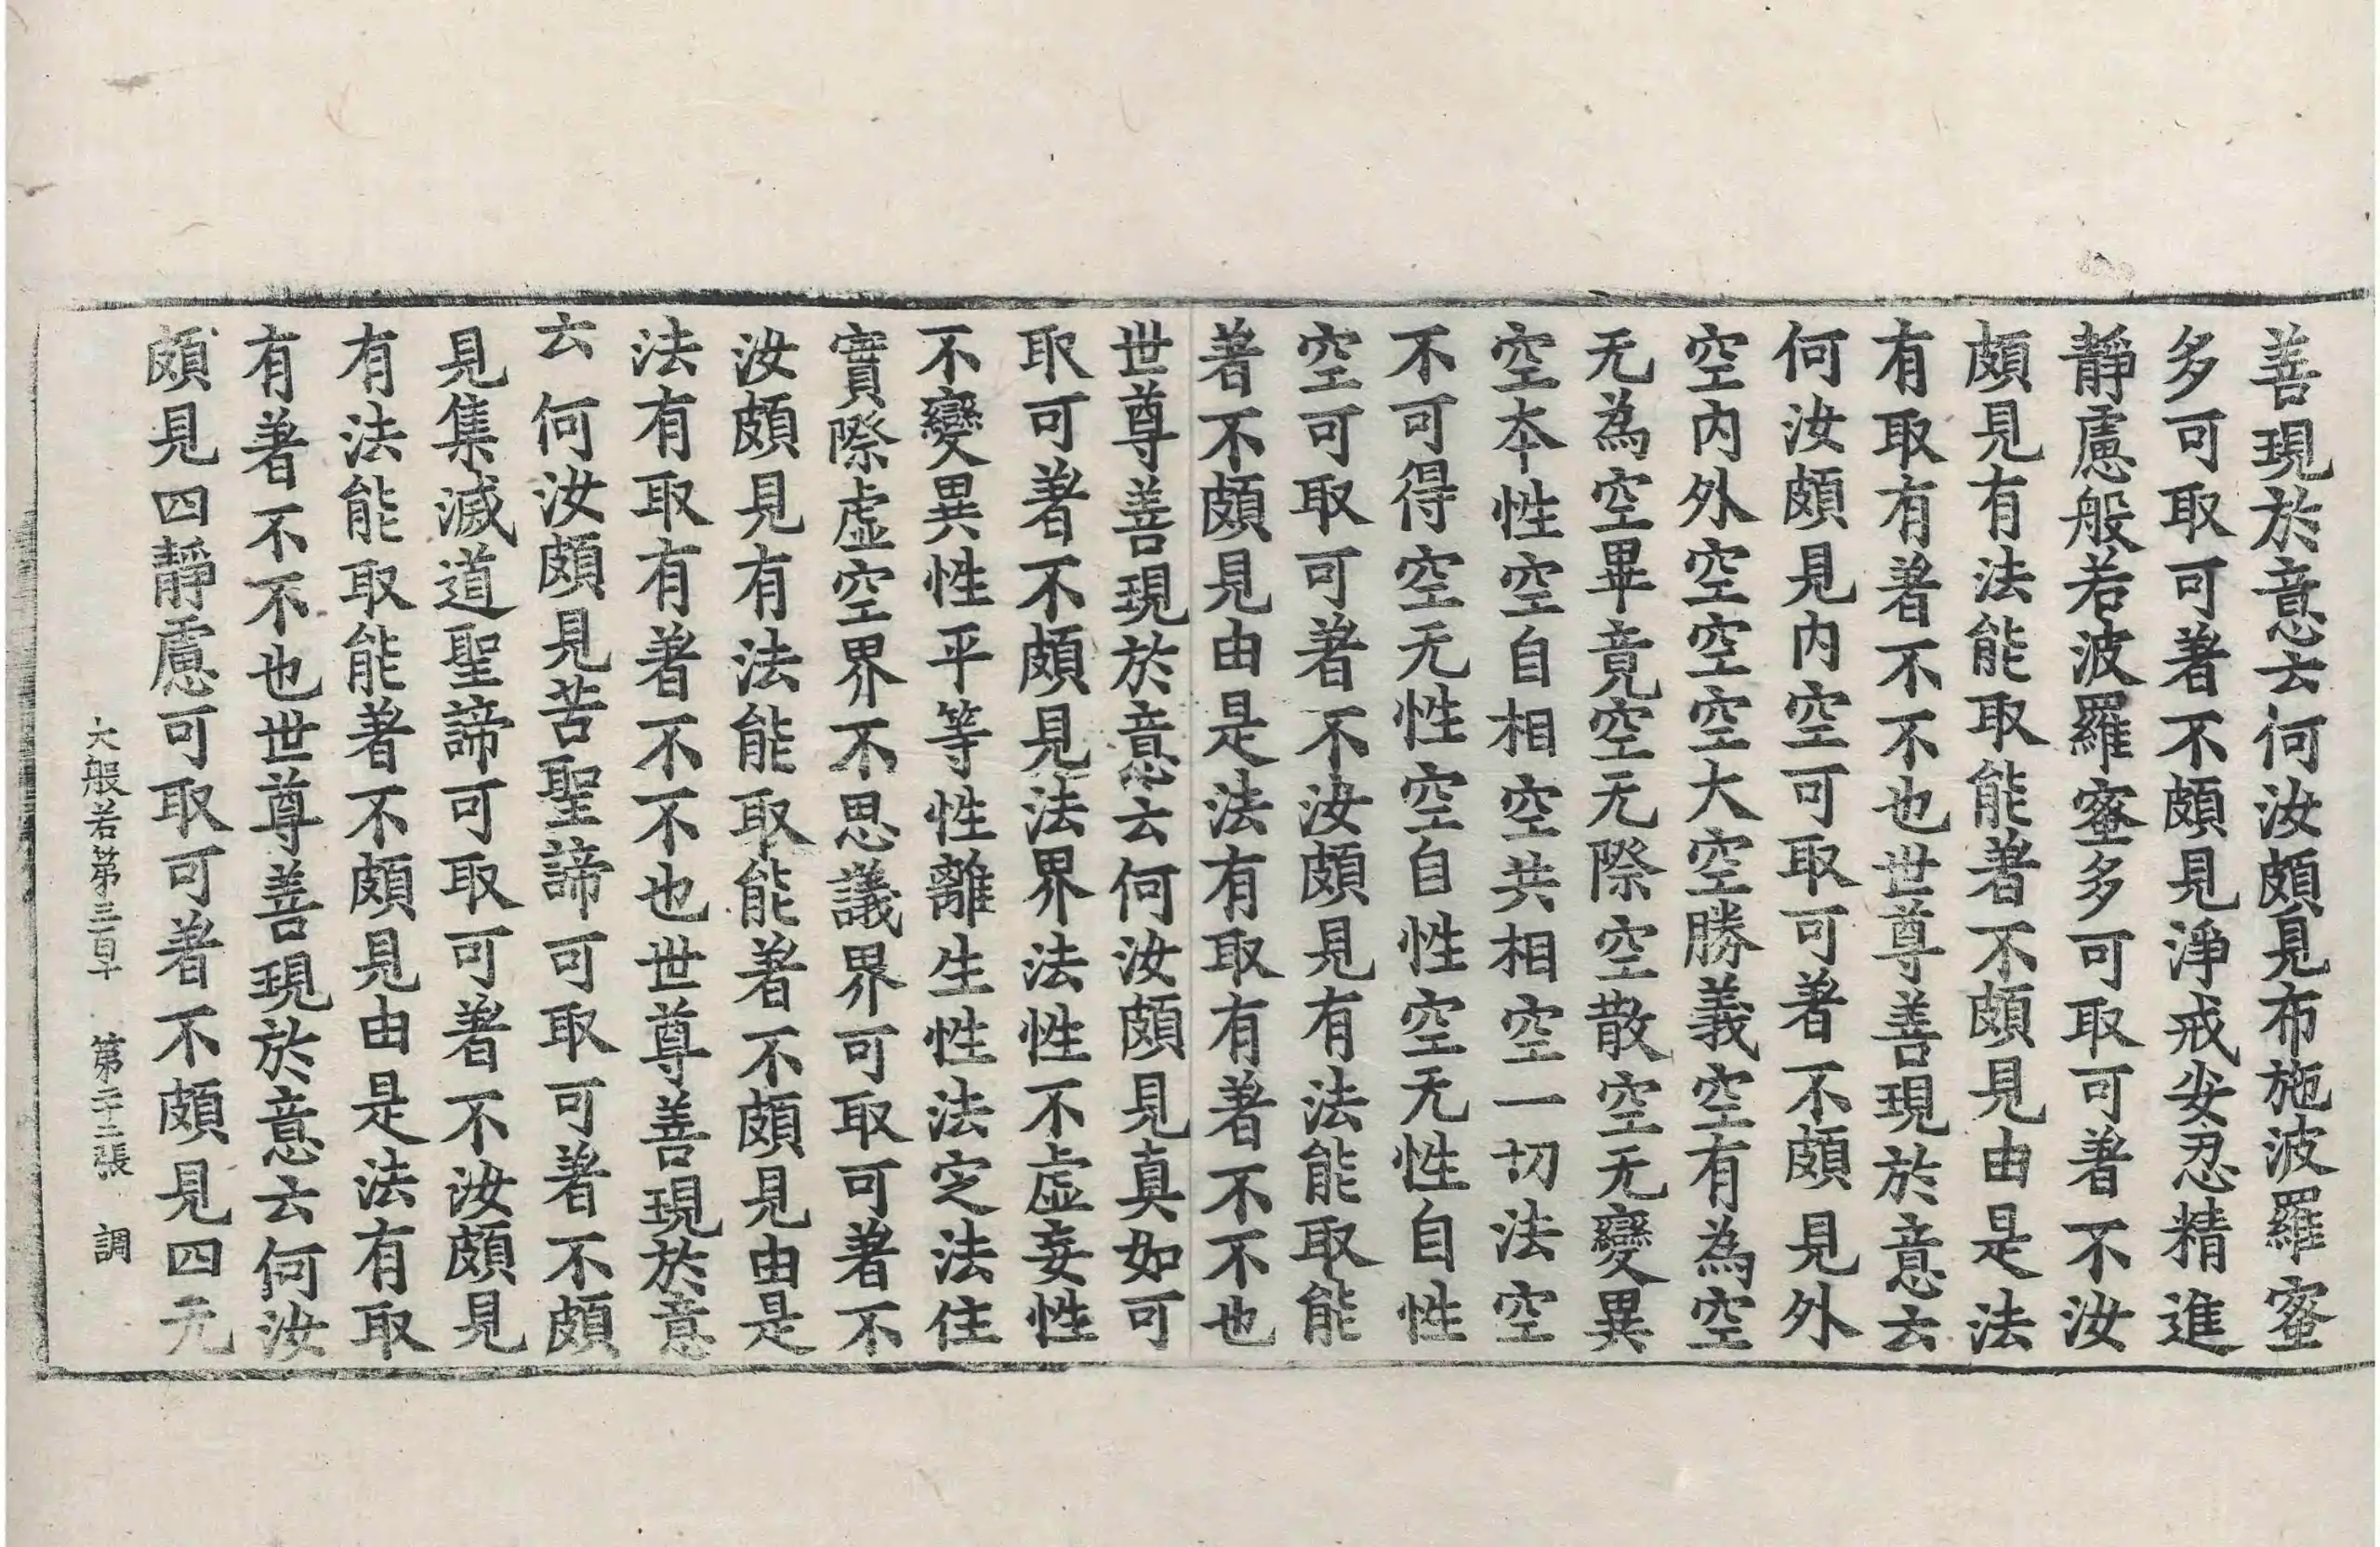 善現於意云何汝頗見布施波羅蜜
多可取可著不頗見淨戒安忍精進
靜慮般若波羅蜜多可取可著不汝
頗見有法能取能著不頗見由是法
有取有著不不也世尊善現於意云
何汝頗見内空可取可著不頗見外
空内外空空空大空勝義空有為空
无為空畢竟空无際空散空无變異
空本性空自相空共相空一切法空
不可得空无性空自性空无性自性
空可取可著不汝頗見有法能取能
著不頗見由是法有取有著不不也
世尊善現於意云何汝頗見真如可
取可著不頗見法界法性不虛妄性
不變異性平等性離生性法定法住
實際虛空界不思議界可取可著不
汝頗見有法能取能著不頗見由是
法有取有著不不也世尊善現於意
云何汝頗見苦聖諦可取可著不頗
見集滅道聖諦可取可著不汝頗見
有法能取能著不頗見由是法有取
有著不不也世尊善現於意云何汝
頗見四靜慮可取可著不頗見四无
大般若第三百卓 第二十二張 調